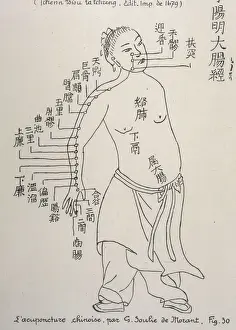 ( Tchenn Tsiou ta tchreng . Edit. Imp. de 1679 )
陽明大腸經
迎香
禾髎
扶突
天鼎
巨骨
肩髃
臂臑
五里
肘髎
曲池
三里
上廉
下廉
溫溜
偏歷
陽谿
三間
二間
絡肺
下膈
L'acuponcture chinoise, par G. Soulie de Morant, Fig. 30